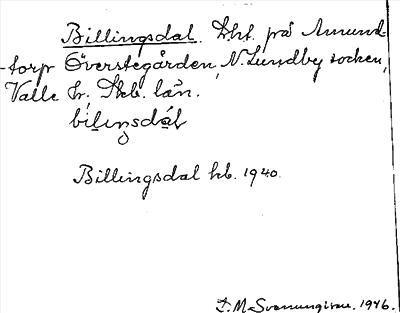 Billingsdal. Lht. på Amund-
-torp Överstegården, N. Lundby socken,
Valle hr, Skb. län.
bilingsdal
Billingsdal hb. 1940.
1946.